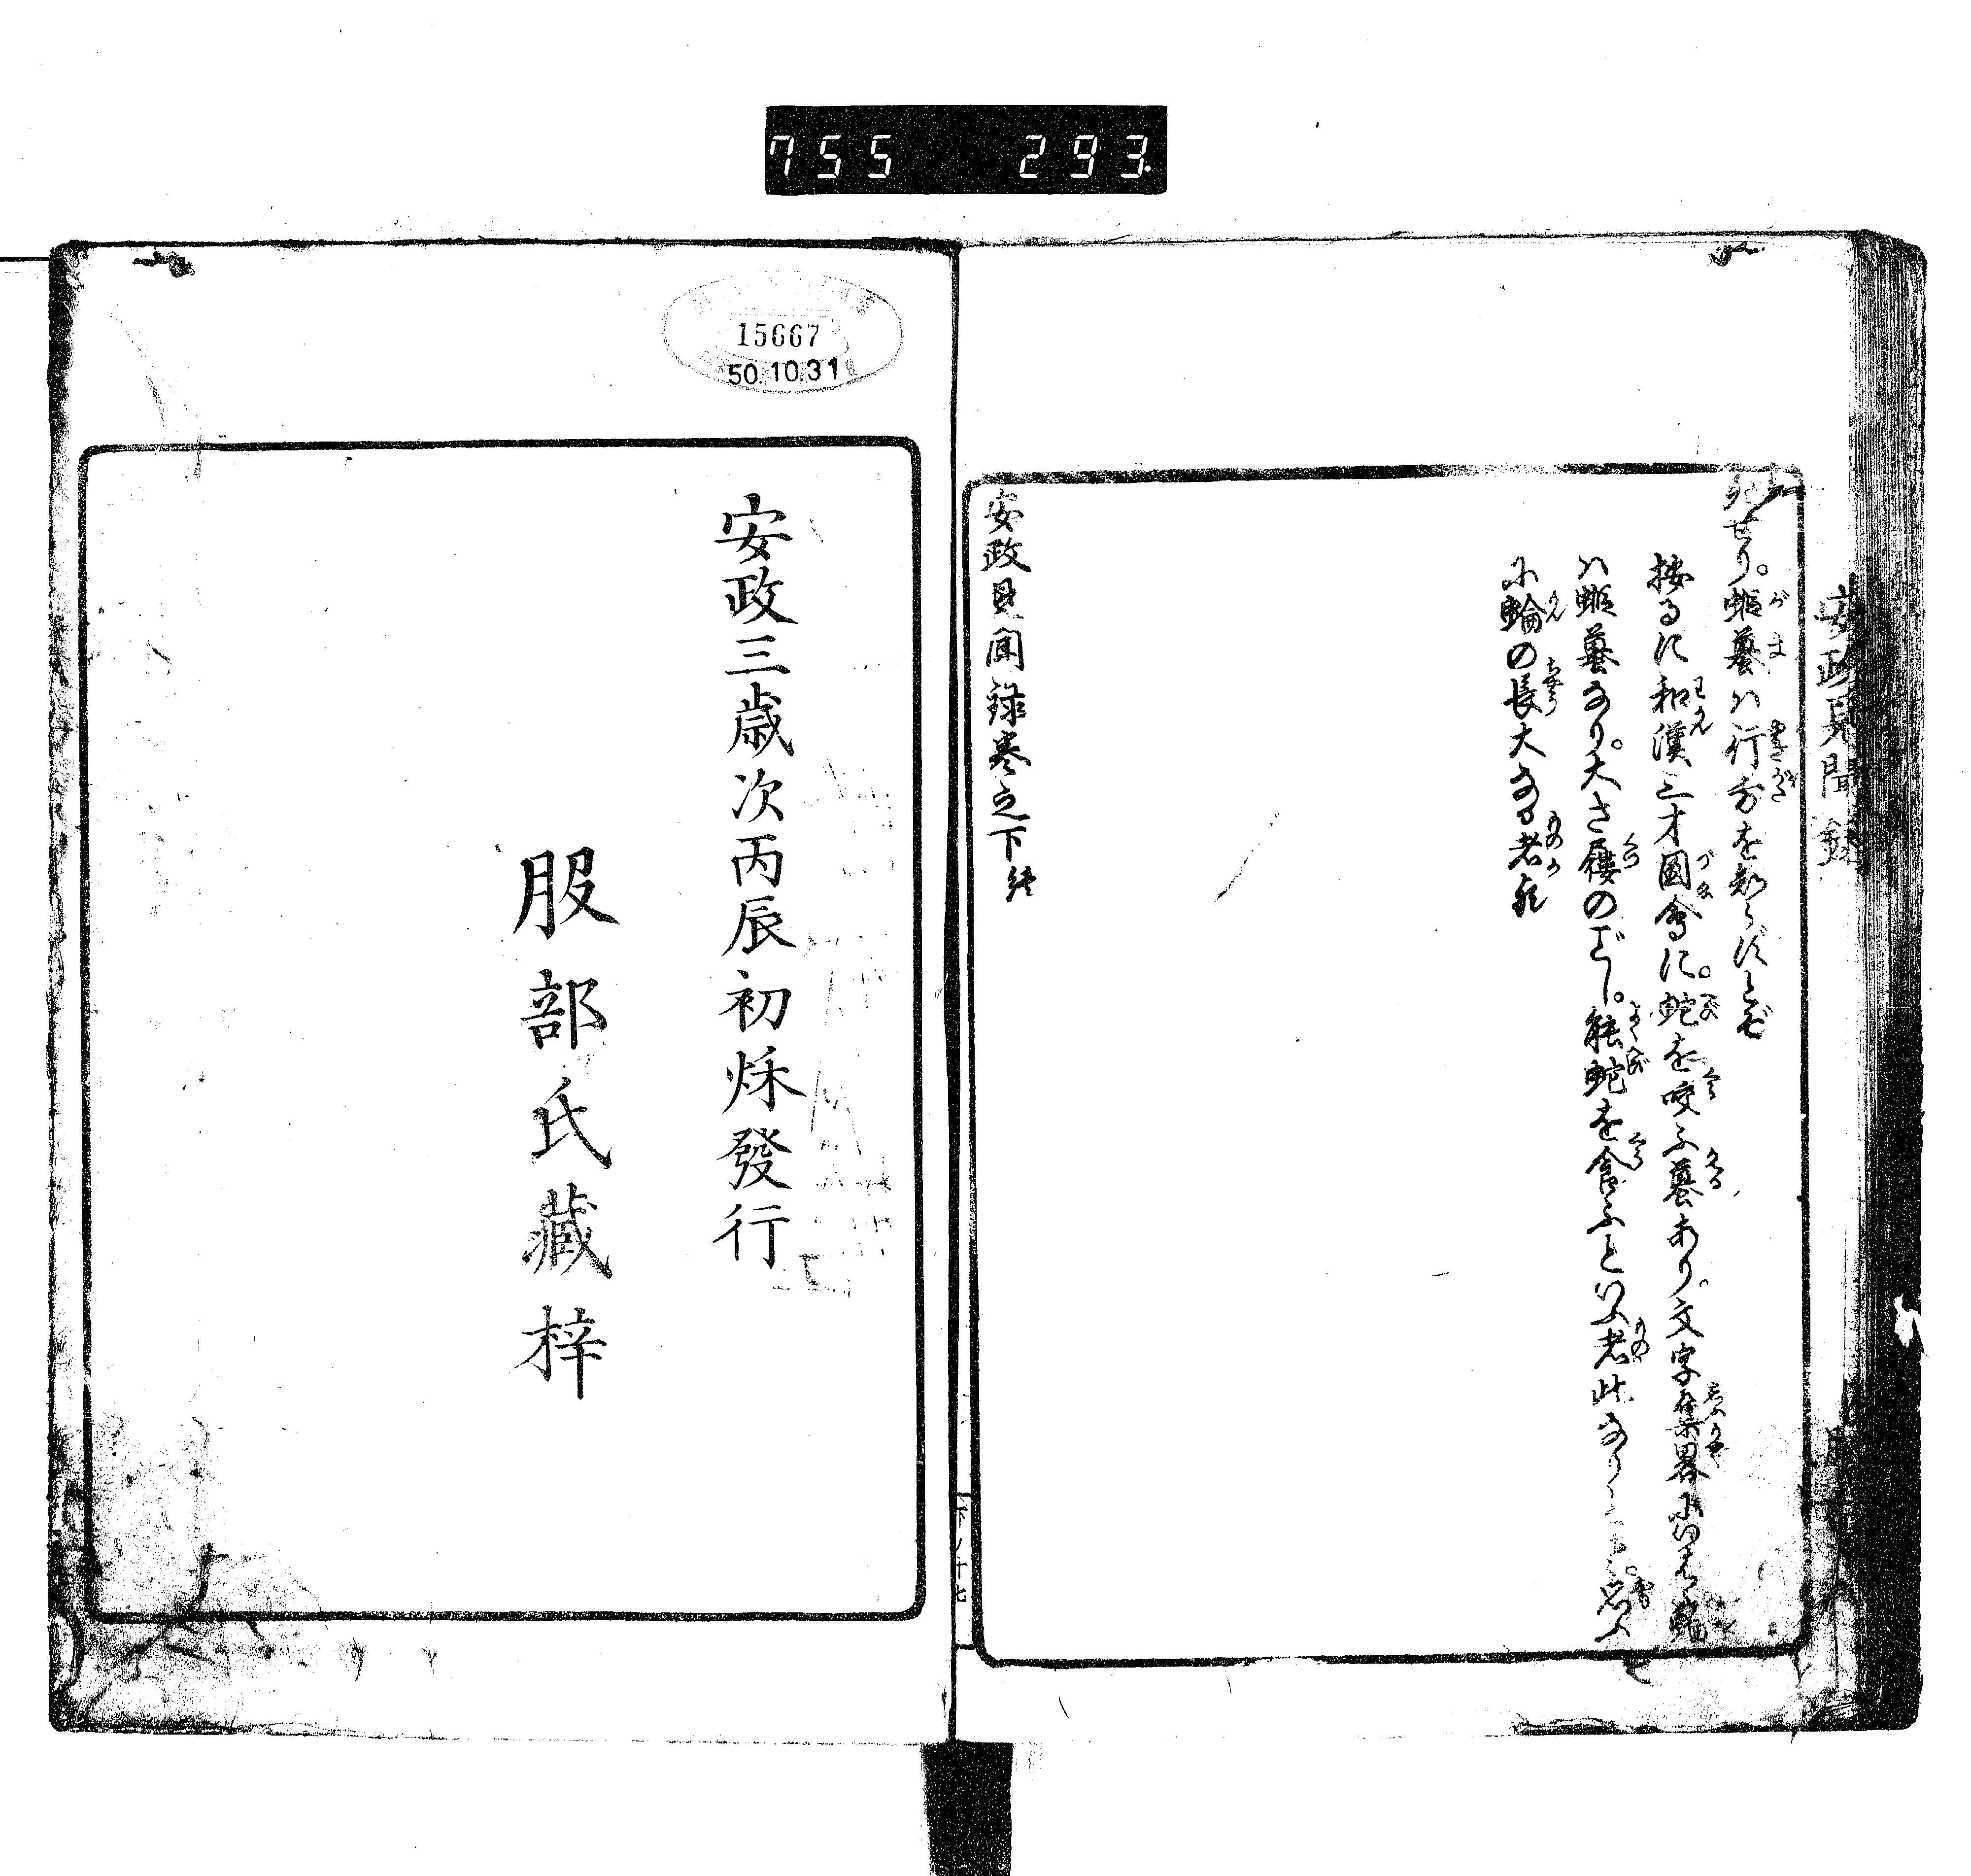 755 293.
安政見聞録
死せり。蝦蟇ハ行方を知らずとぞ
按るに和漢三才圖會に。蛇を咬ふ蟇あり。文字集畧にいはく
ハ蝦蟇なり。大さ屨のごし。能蛇を食ふといふ者此なり
に蜦の長大なる者
安政見聞録巻之下終
下ノ十七
15667
50.10.31
安政三歳次丙辰初秌發行
服部氏藏梓